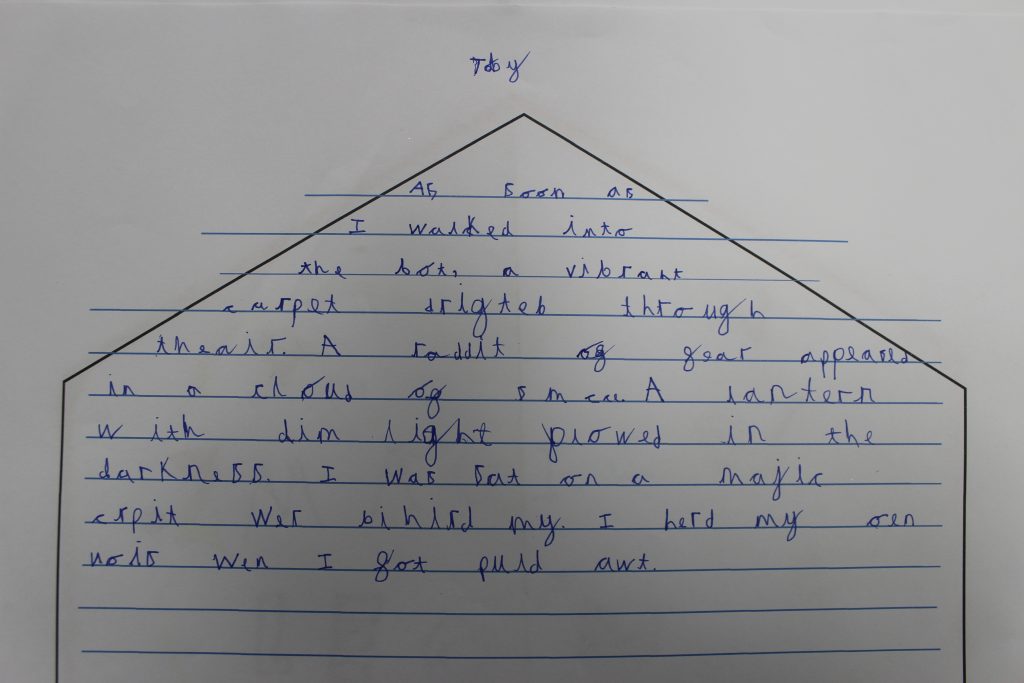 Toby
As soon as
I walked into
the bot, a vibrant
carpet drigteb through
theair. A raddit og gear appeared
in a cloud og smcu. A lantern
with dim light plowed in the
darkness. I was sat on a majic
crpit wer bihind my. I herd my oen
nois wen I got puld awt.